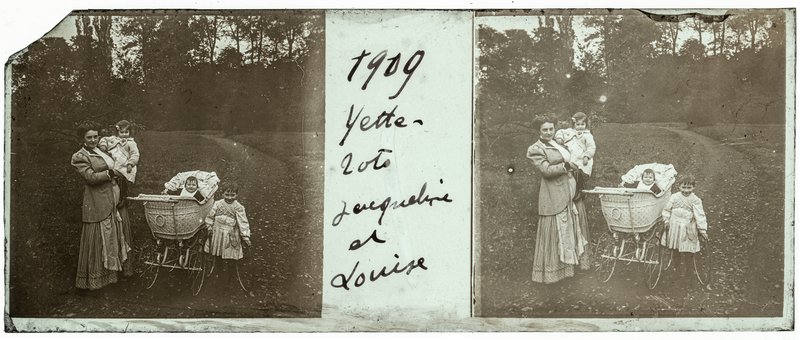 1909
Yette-
Toto
Jacqueline
et
Louise